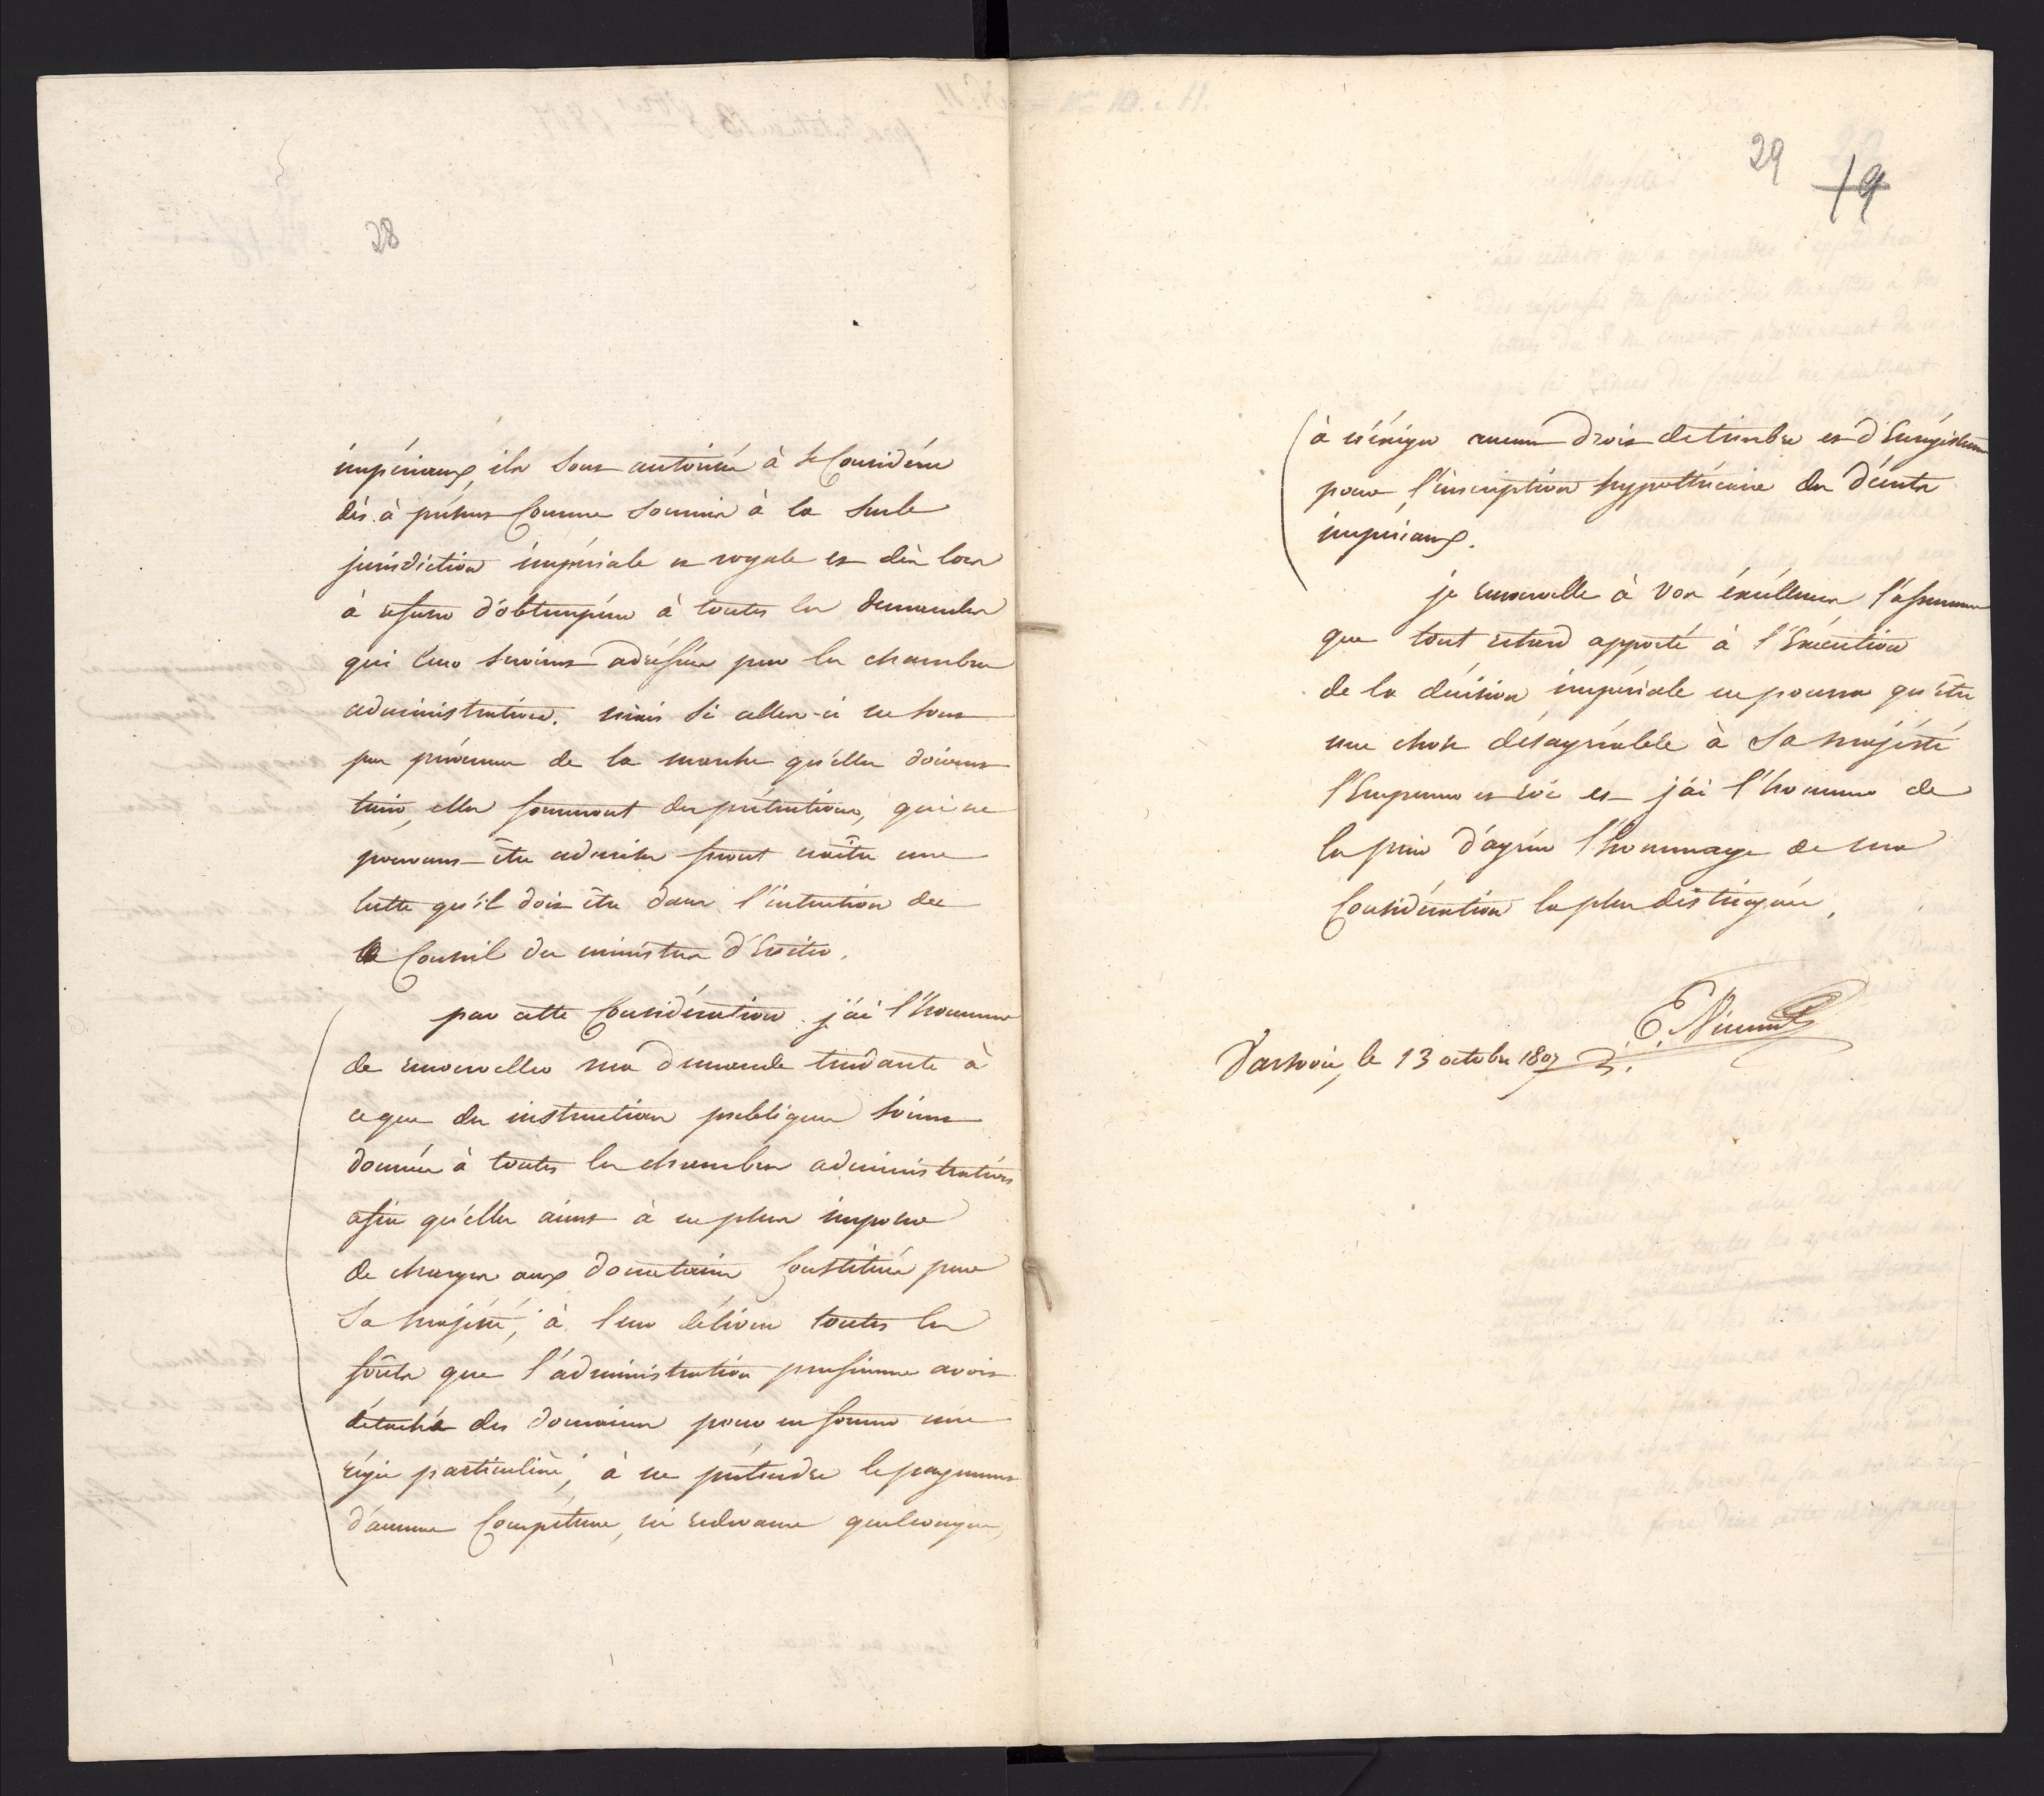 28
impériaux, ils sont autorisés à se Considérer
dès à présent Comme soumis à la seule
jurisdiction impériale et royale et dès lors
à refuser d'obtempérer à toutes les demandes
qui leur seroient adréssées par les chambres
administratives. mais si celles-ci ne sont
pas prévenues de la marche qu'elles doivent
tenir, elles formeront des prétentions, qui ne
pouvant être admises feront naître une
lutte qu'il doit être dans l'intention de
le Conseil des ministres d'Eviter.
par cette Considération j'ai l'honneur
de renouveller ma demande tendante à
ce que des instructions publiques soient
données à toutes les chambres administratives
afin qu'elles aient à ne plus imposer
de charges aux donataires Constitués par
Sa Majésté; à leur délivrer toutes les
forêts que l'administration prussienne avoit
détaché des domaines pour en former une
régie particulière; à ne prétendre le payement
d'aucune Compétence, ni redevance quelconque,
29
19
à n'éxiger aucun droit de timbre et d'Enrégistrement
pour l'inscription hypothécaire des décrets
impériaux.
je renouvelle à Vos éxcéllences l'assurance
que tout retard apporté à l'Exécution
de la décision impériale ne pourra qu'être
une chose désagréable à Sa Majésté
l'Empereur et roi et j'ai l'honneur de
les prier d'agréer l'hommage de ma
Considération la plus distinguée.
E. Vincent
Varsovie, le 13 octobre 1807.